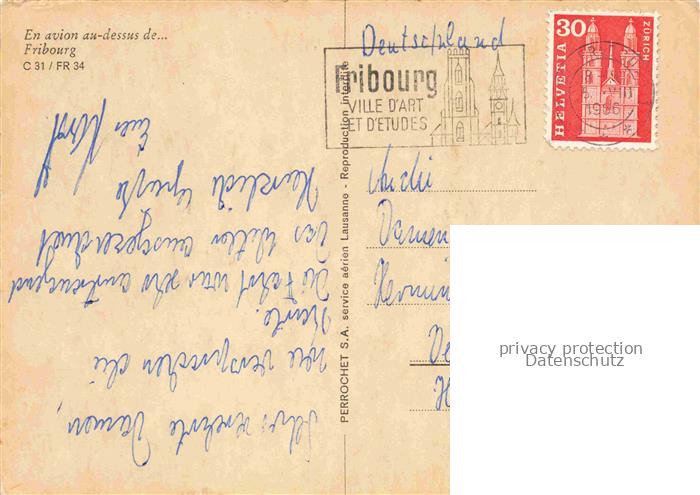 En avion au-dessus de...
Fribourg
C 31 / FR 34
Deutschland
Fribourg
VILLE D'ART
ET D'ETUDES
HELVETIA
30
ZÜRICH
PERROCHET S.A. service aérien Lausanne - Reproduction interdite
An die
Damen
Sehr geehrte Damen,
wie versprochen die
Karte.
Die Fahrt war sehr anstrengend
Das Wetter ausgezeichnet
Herzliche Grüsse
Euer Horst
privacy protection
Datenschutz